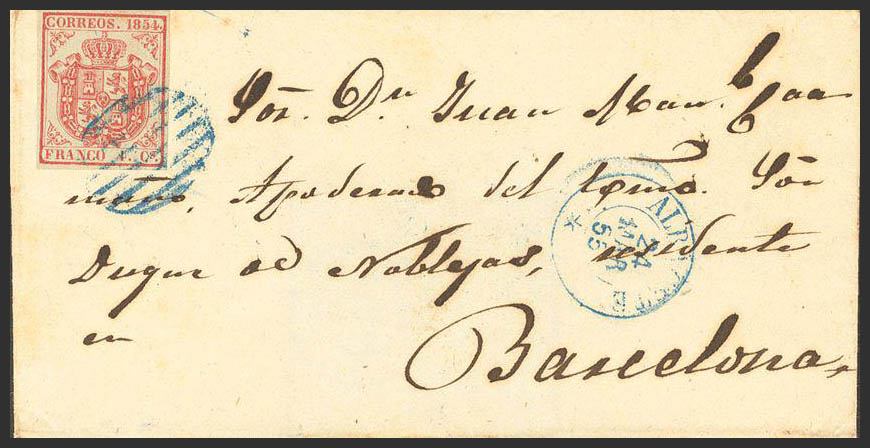 CORREOS. 1854.
FRANCO
Sor. Dn. Juan Man.l Caa
maño, Apoderado del Exmo. Sor
Duque de Noblejas, residente
en
Barcelona.
24
MAR
55